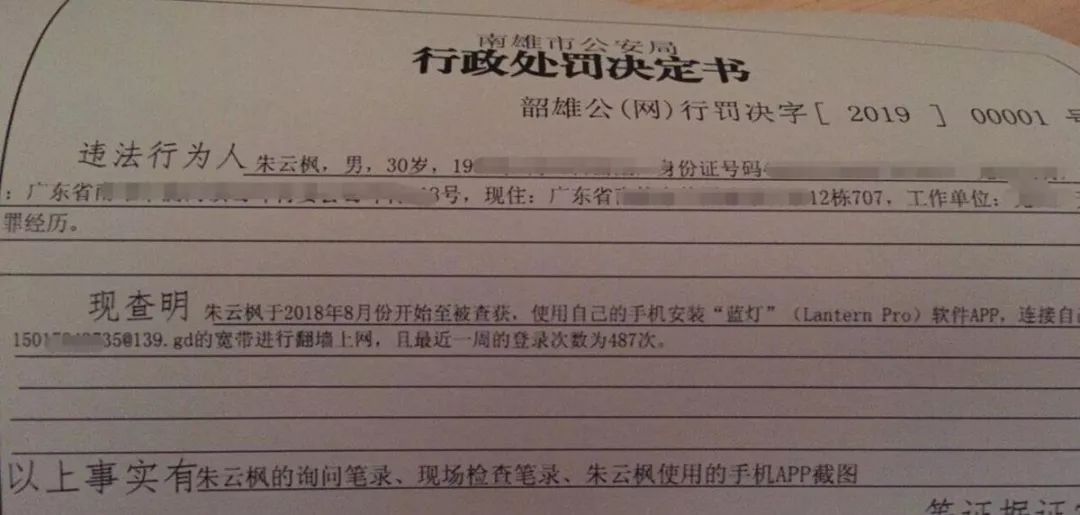 南雄市公安局
行政处罚决定书
韶雄公(网)行罚决字[ 2019 ] 00001 号
违法行为人 朱云枫，男，30岁，19 身份证号码
：广东省南 3号，现住：广东省 12栋707，工作单位：
罪经历。
现查明 朱云枫于2018年8月份开始至被查获，使用自己的手机安装“蓝灯”（Lantern Pro）软件APP，连接自
150 35@139.gd的宽带进行翻墙上网，且最近一周的登录次数为487次。
以上事实有朱云枫的询问笔录、现场检查笔录、朱云枫使用的手机APP截图
等证据证